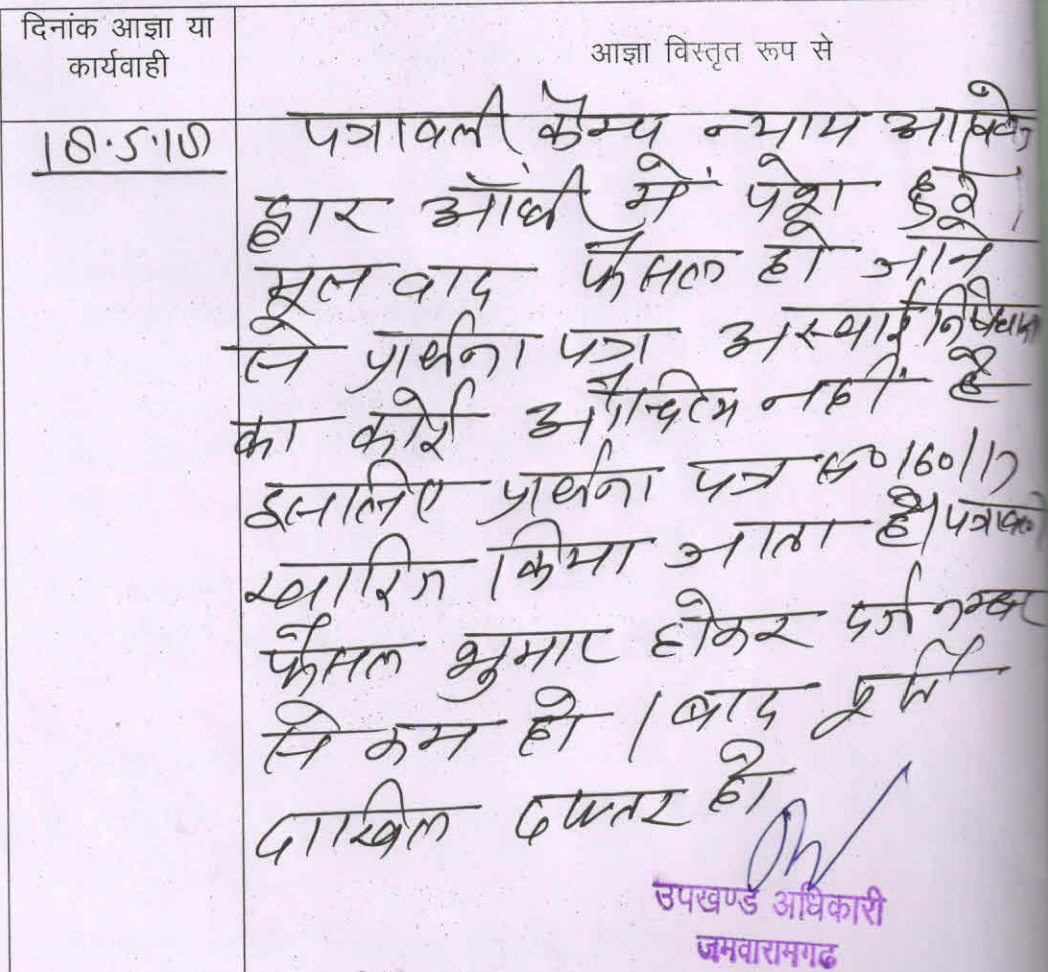 दिनांक आज्ञा या
कार्यवाही
आज्ञा विस्तृत रूप से
18.5.18
पत्रावली कैम्प न्याय आपके
द्वार आँधी में पेश हुई।
मूल वाद फैसल हो जाने
से प्रार्थना पत्र अस्थाई निषेधाज्ञा
का कोई औचित्य नहीं है
इसलिए प्रार्थना पत्र सं० 160/17
खारिज किया जाता है। पत्रावली
फैसल शुमार होकर दर्ज नम्बर
से कम हो। बाद पूर्ति
दाखिल दफ्तर हो।
उपखण्ड अधिकारी
जमवारामगढ